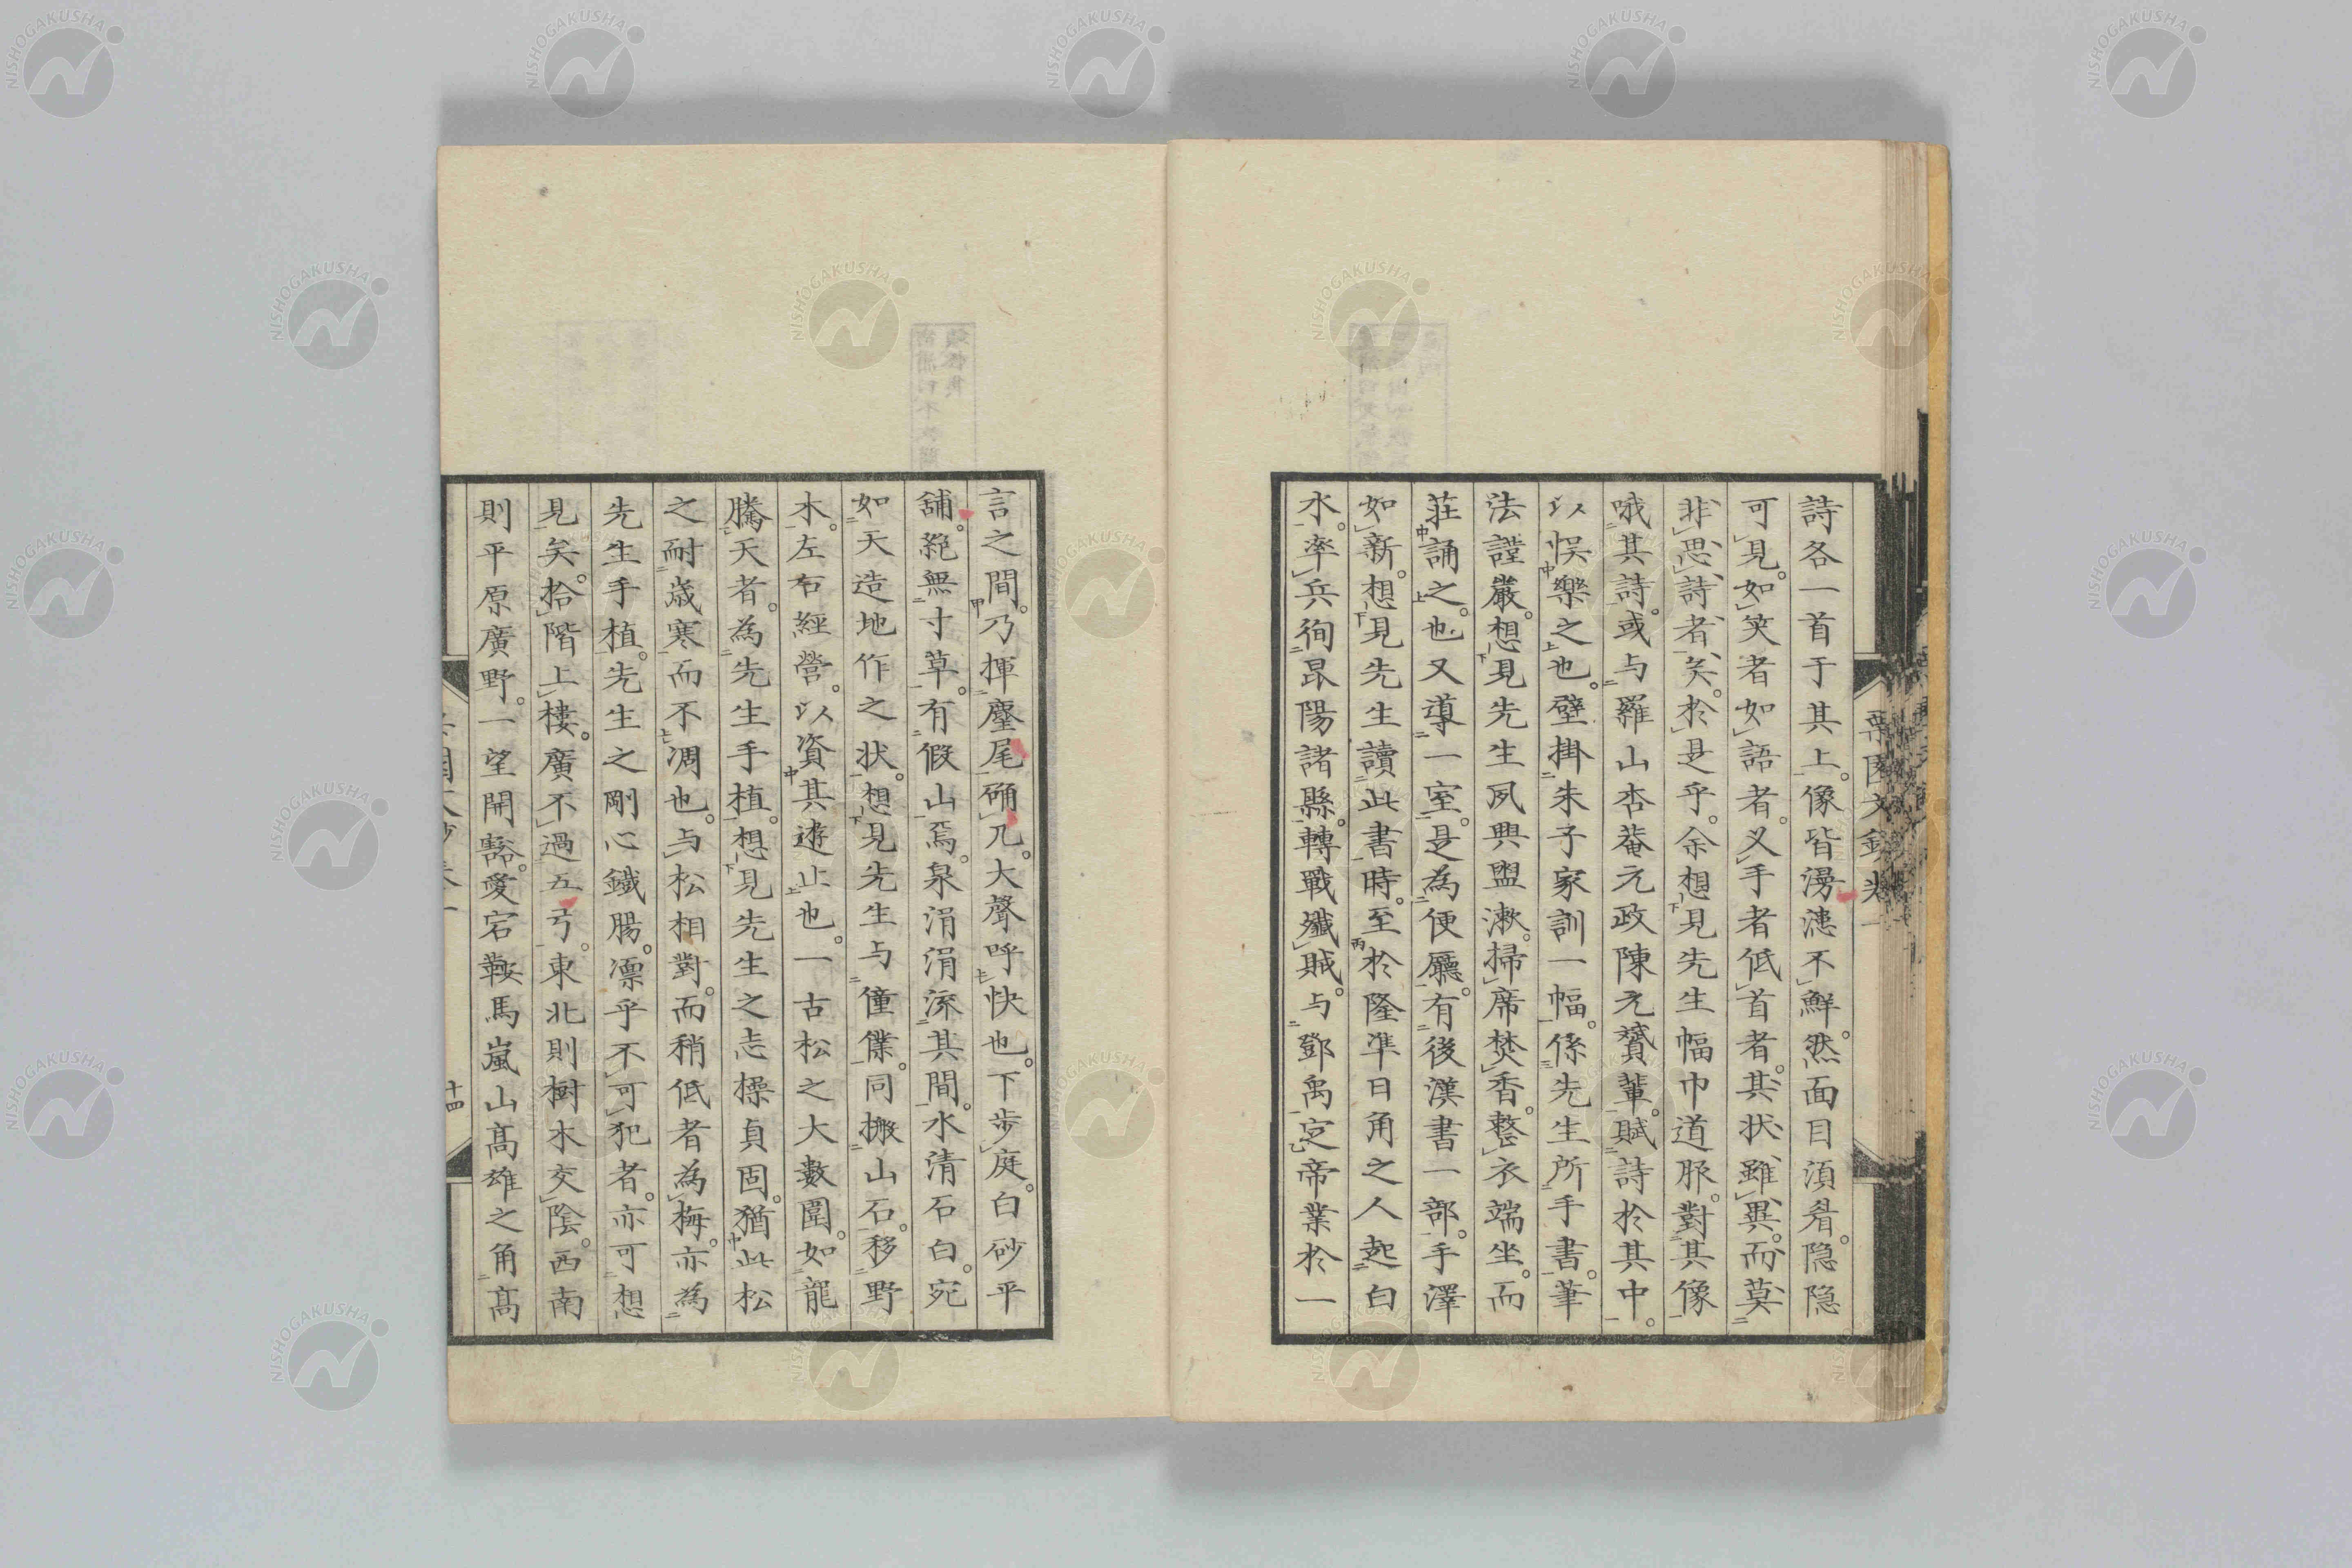 詩各一首于其上。像皆漫漶不鮮。然面目須眉。隠隠
可見。如笑者如語者。叉手者低首者。其状雖異。而莫
非思詩者矣。於是乎。余想見先生幅巾道服。對其像
哦其詩。或与羅山杏菴元政陳元贇輩。賦詩於其中。
以悞樂之也。壁掛朱子家訓一幅。係先生所手書。筆
法謹嚴。想見先生夙興盥漱。掃席焚香。整衣端坐。而
荘誦之也。又導一室。是為便廳。有後漢書一部。手澤
如新。想見先生讀此書時。至於隆準日角之人起白
水。率兵徇昂陽諸縣。轉戰殲賊。与鄧禹定帝業於一
言之間。乃揮麈尾确几。大聲呼快也。下歩庭。白砂平
舗。絶無寸草。有假山焉。泉涓涓流其間。水清石白。宛
如天造地作之状。想見先生与僮僕。同搬山石。移野
木。左右經營。以資其遊止也。一古松之大數圍。如龍
騰天者。為先生手植。想見先生之志操貞固。猶此松
之耐歳寒而不凋也。与松相對。而稍低者為梅。亦為
先生手植。先生之剛心鐵腸。凛乎不可犯者。亦可想
見矣。拾階上樓。廣不過五弓。東北則樹木交陰。西南
則平原廣野。一望開豁。愛宕鞍馬嵐山髙雄之角髙
十四